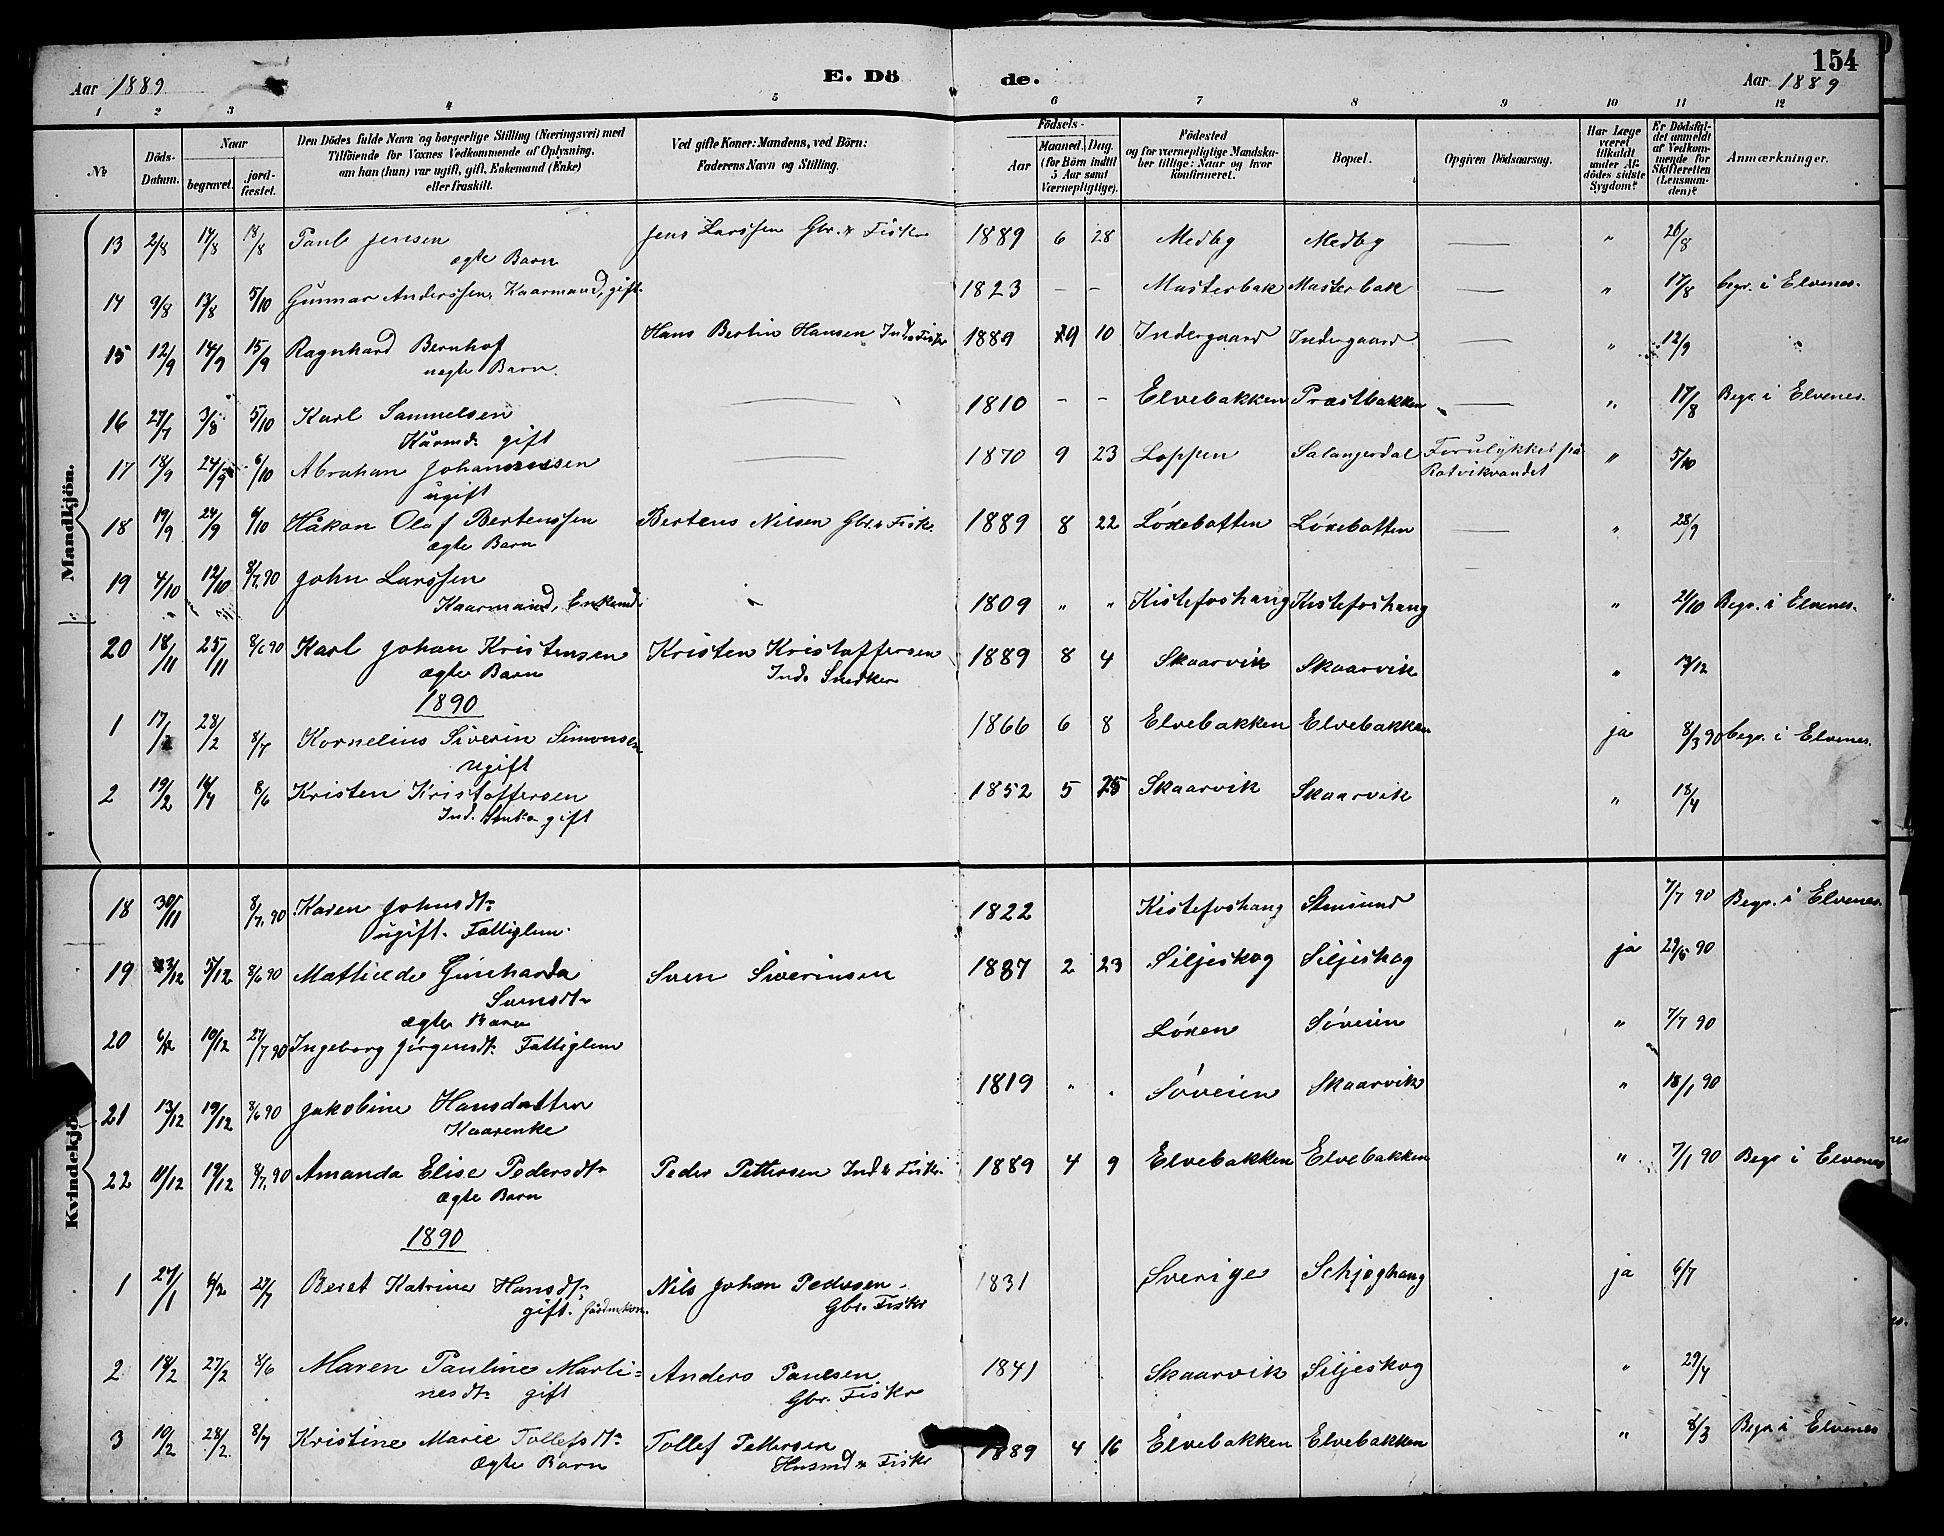 154
Aar 1889 E. Dö de. Aar 1889
1 2 3 4 5 6 7 8 9 10 11 12
No
Döds-Datum.
Naar begravet. jordfæstet.
Den Dödes fulde Navn og borgerlige Stilling (Næringsvei) med Tilföiende for Voxnes Vedkommende af Oplysning, om han (hun) var ugift, gift, Enkemand (Enke) eller fraskilt.
Ved gifte Koner: Mandens, ved Börn: Faderens Navn og Stilling.
Födsels-
Aar Maaned. Dag. (for Börn indtil 5 Aar samt Værnepligtige).
Födested og for værnepligtige Mandskaber tillige: Naar og hvor konfirmeret.
Bopæl.
Opgiven Dödsaarsag.
Har Læge været tilkaldt under Afdödes sidste Sygdom?
Er Dödsfaldet anmeldt af Vedkommende for Skifteretten (Lensmanden)?
Anmærkninger.
Mandkjön.
13 2/8 14/8 18/8 Paul Jensen Jens Larssen Gbr. & Fisker 1889 6 28 Medby Medby — " 26/8
ægte Barn
14 9/8 13/8 5/10 Gunnar Anderssen, Kaarmand, gift 1823 - - Masterbak Masterbak — " 17/8 begr. i Elvenes.
15 12/9 14/9 15/9 Ragnhard Bernhof Hans Bertin Hansen Ind. & Fisker 1889 9 10 Indergaard Indergaard — " 12/9
uægte Barn.
16 27/7 3/8 5/10 Karl Samuelsen — 1810 - - Elvebakken Præstbakken — " 17/8 Begr. i Elvenes.
Kårmd. gift
17 18/9 24/9 6/10 Abraham Johannessen — 1870 9 23 Loppen Salangerdal Forulykket på " 5/10
ugift Rotvikvandet
18 19/9 24/9 6/10 Håkon Olaf Bertenssen Bertens Nilsen Gbr. & Fisker. 1889 8 22 Löxebotten Löxebotten — " 28/9
ægte Barn
19 4/10 12/10 8/7 90 John Larssen 1809 " " Kistefoshaug Kistefoshaug " 24/10 Begr. i Elvenes.
Kaarmand, Enkemd.
20 18/11 25/11 8/6 90 Karl Johan Kristensen Kristen Kristoffersen 1889 8 4 Skaarvik Skaarvik " 13/12
ægte Barn Ind. Snedker
1890
1 17/2 28/2 8/7 Kornelius Siverin Simonsen 1866 6 8 Elvebakken Elvebakken ja 8/3 90 begr. i Elvenes.
ugift
2 19/2 14/4 8/6 Kristen Kristoffersen 1852 5 25 Skaarvik Skaarvik " 18/4
Ind. gift
Kvindekjön
18 30/11 8/7 90 Karen Johnsdt. 1822 Kistefoshaug Stensund 7/7 90 Begr. i Elvenes.
ugift. Fattiglem.
19 3/12 5/12 8/6 90 Mathilde Ginharda Sven Siverinsen 1887 2 23 Siljeskog Siljeskog ja 29/5 90
Svensdt.
ægte Barn
20 6/12 10/12 27/7 90 Ingeborg Jörgensdt. Fattiglem Löxen Söveien " 7/7 90
21 13/12 19/12 8/6 90 Jakobine Hansdatter 1819 " " Söveien Skaarvik " 18/1 90
Kaarenke
22 11/12 19/12 8/7 90 Amanda Elise Pedersdt. Peder Pettersen Ind. & Fisker. 1889 4 9 Elvebakken Elvebakken " 7/1 90 Begr. i Elvenes
ægte Barn
1890
1 27/1 6/2 27/7 Beret Katrine Hansdt. Nils Johan Pedersen 1831 Sverige Schjeghaug ja 6/7
gift. Gårdmkone. Gbr. Fisker
2 18/2 27/2 8/6 Maren Pauline Marti- Anders Paulsen 1841 Skaarvik Siljeskog " 29/4
nesdt. gift Gbr. Fisker
3 10/2 28/2 8/7 Kristine Marie Tollefsdt. Tollef Pettersen 1889 4 16 Elvebakken Elvebakken " 8/3 Begr. i Elvenes
Ægte Barn Husmd & Fisker